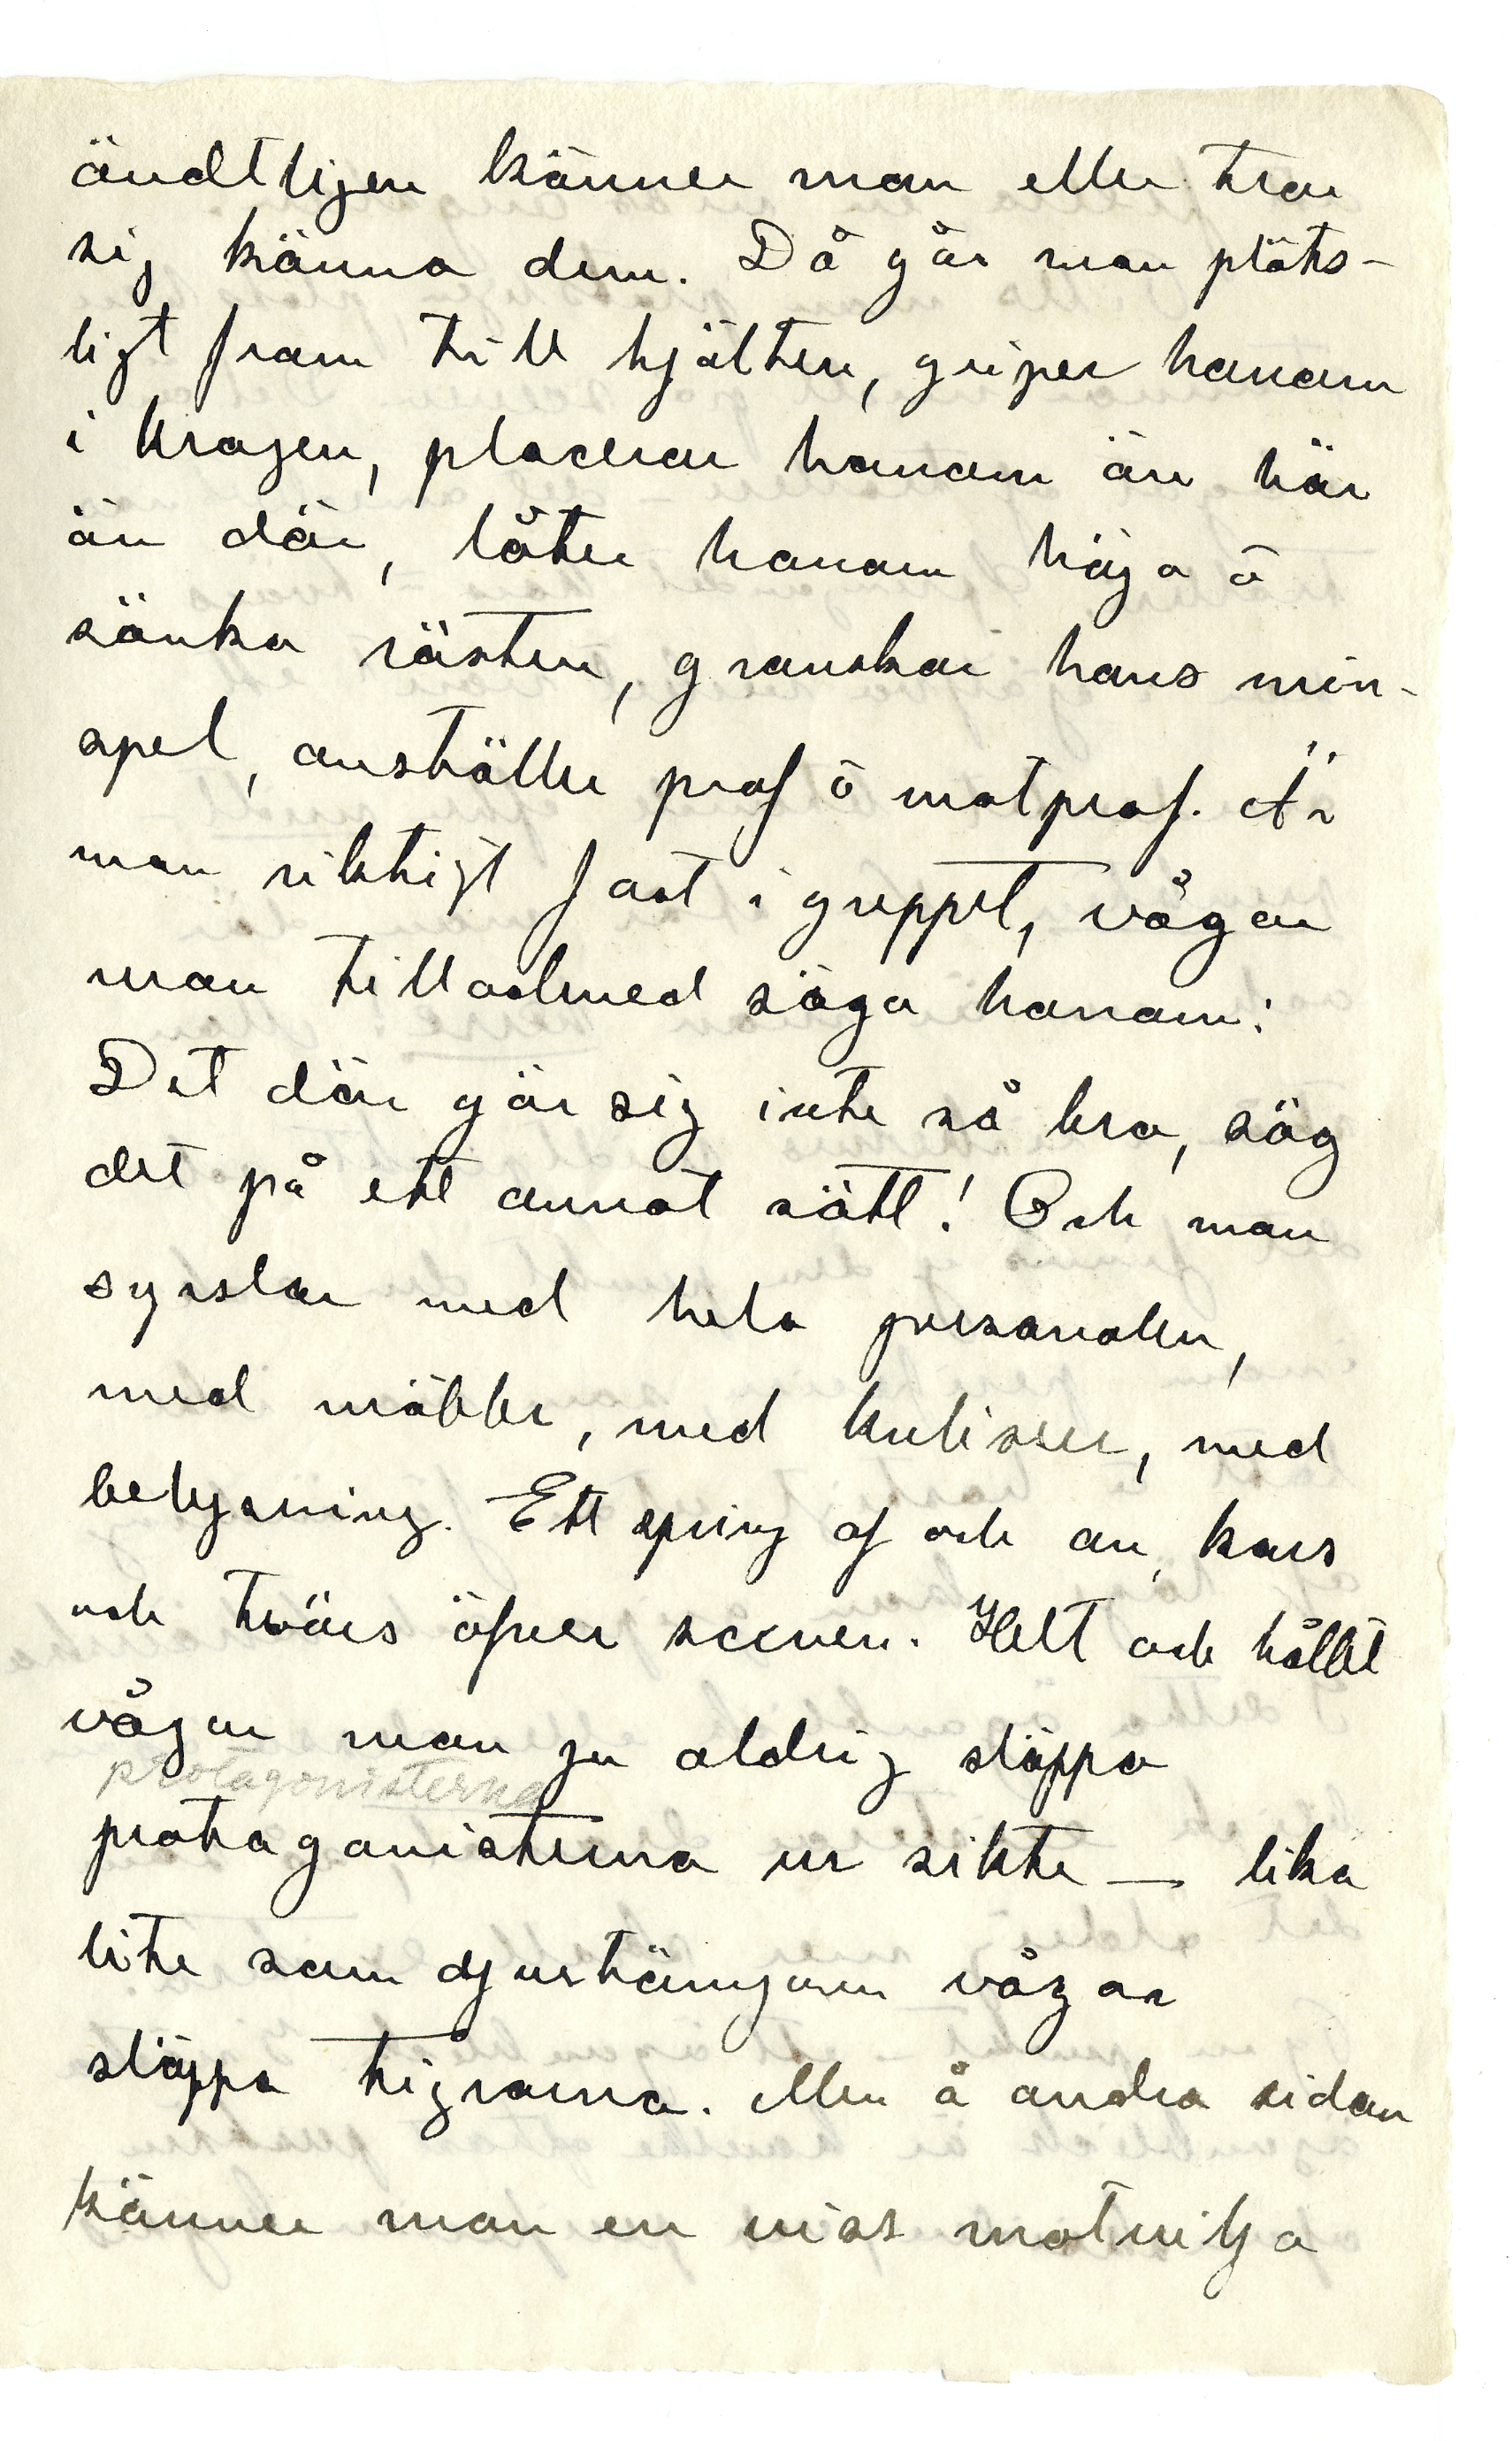 ändtligen känner man eller tror
sig känna dem. Då går man plöts-
ligt fram till hjälten, griper honom
i kragen, placerar honom än här
än där, låter honom höja o
sänka rösten, granskar hans min-
spel, anställer prof o motprof. Är
man riktigt fast i greppet, vågar
man tillochmed säga honom:
Det där gör sig inte så bra, säg
det på ett annat sätt! Och man
sysslar med hela personalen,
med möbler, med kulisser, med
belysning. Ett spring af och an, kors
och tvärs öfver scenen. Helt och hållet
vågar man ju aldrig släppa
protagonisterna
protagonisterna ur sikte — lika
lite som djurtämjaren vågar
släppa tigrarna. Men å andra sidan
känner man en viss motvilja